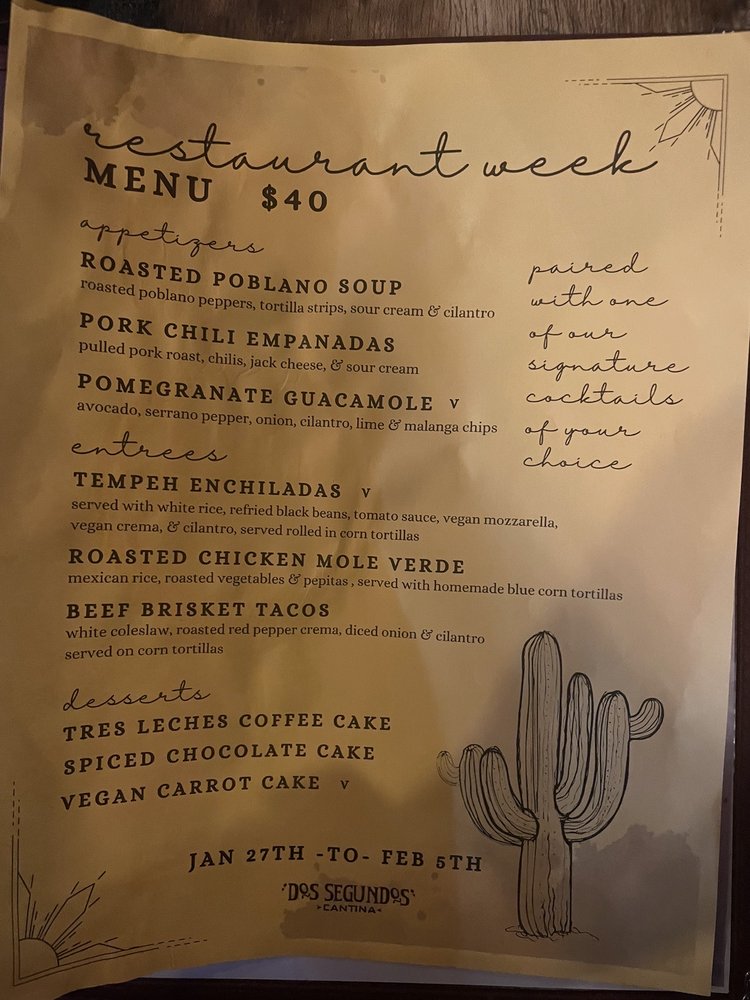 restaurant week
MENU $40
appetizers
ROASTED POBLANO SOUP
roasted poblano peppers, tortilla strips, sour cream & cilantro
PORK CHILI EMPANADAS
pulled pork roast, chilis, jack cheese, & sour cream
POMEGRANATE GUACAMOLE V
avocado, serrano pepper, onion, cilantro, lime & malanga chips
paired
with one
of our
signature
cocktails
of your
choice
entrees
TEMPEH ENCHILADAS V
served with white rice, refried black beans, tomato sauce, vegan mozzarella,
vegan crema, & cilantro, served rolled in corn tortillas
ROASTED CHICKEN MOLE VERDE
mexican rice, roasted vegetables & pepitas , served with homemade blue corn tortillas
BEEF BRISKET TACOS
white coleslaw, roasted red pepper crema, diced onion & cilantro
served on corn tortillas
desserts
TRES LECHES COFFEE CAKE
SPICED CHOCOLATE CAKE
VEGAN CARROT CAKE V
JAN 27TH -TO- FEB 5TH
DOS SEGUNDOS
CANTINA